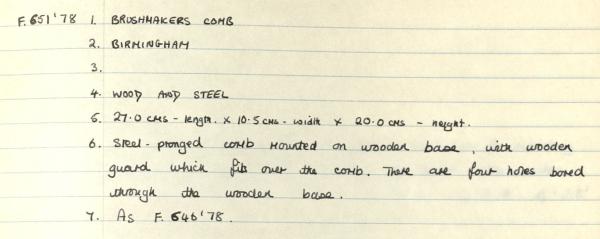 F.651'78 1. BRUSHMAKERS COMB
2. BIRMINGHAM
3.
4. WOOD AND STEEL
5. 27.0 CMS - length. x 10.5 CMS - width x 20.0 CMS - height.
6. Steel-pronged comb mounted on wooden base, with wooden
guard which fits over the comb. There are four holes bored
through the wooden base.
7. As F.646'78.